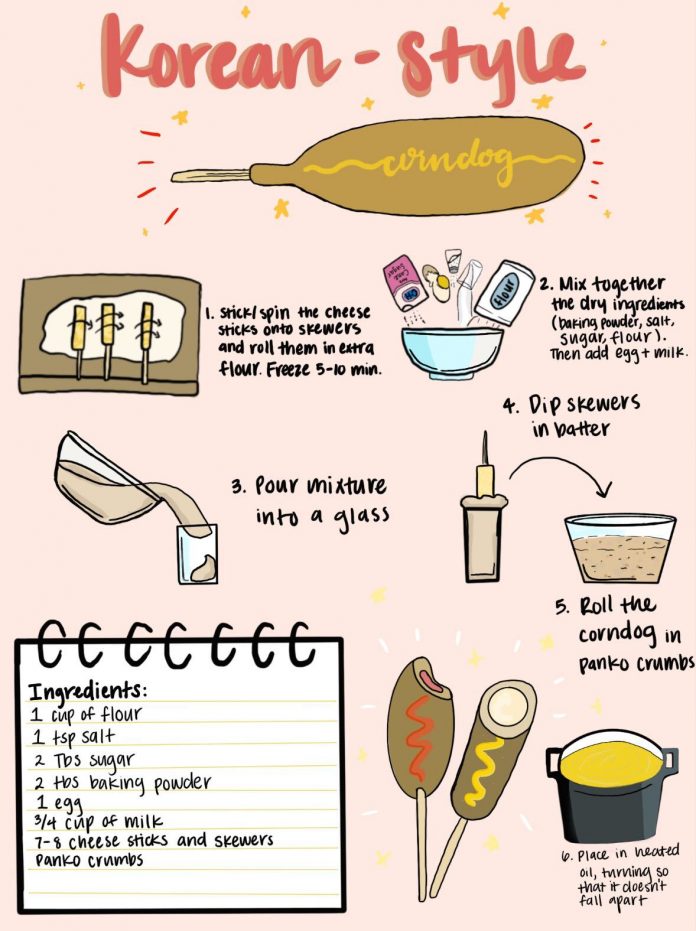 Korean-style
corndog
1. Stick/spin the cheese
sticks onto skewers
and roll them in extra
flour. Freeze 5-10 min.
Flour
2. Mix together
the dry ingredients
(baking powder, salt,
sugar, flour).
Then add egg + milk.
3. Pour mixture
into a glass
4. Dip skewers
in batter
5. Roll the
corndog in
panko crumbs
Ingredients:
1 cup of flour
1 tsp salt
2 Tbs sugar
2 tbs baking powder
1 egg
3/4 cup of milk
7-8 cheese sticks and skewers
Panko crumbs
6. Place in heated
oil, turning so
that it doesn't
fall apart